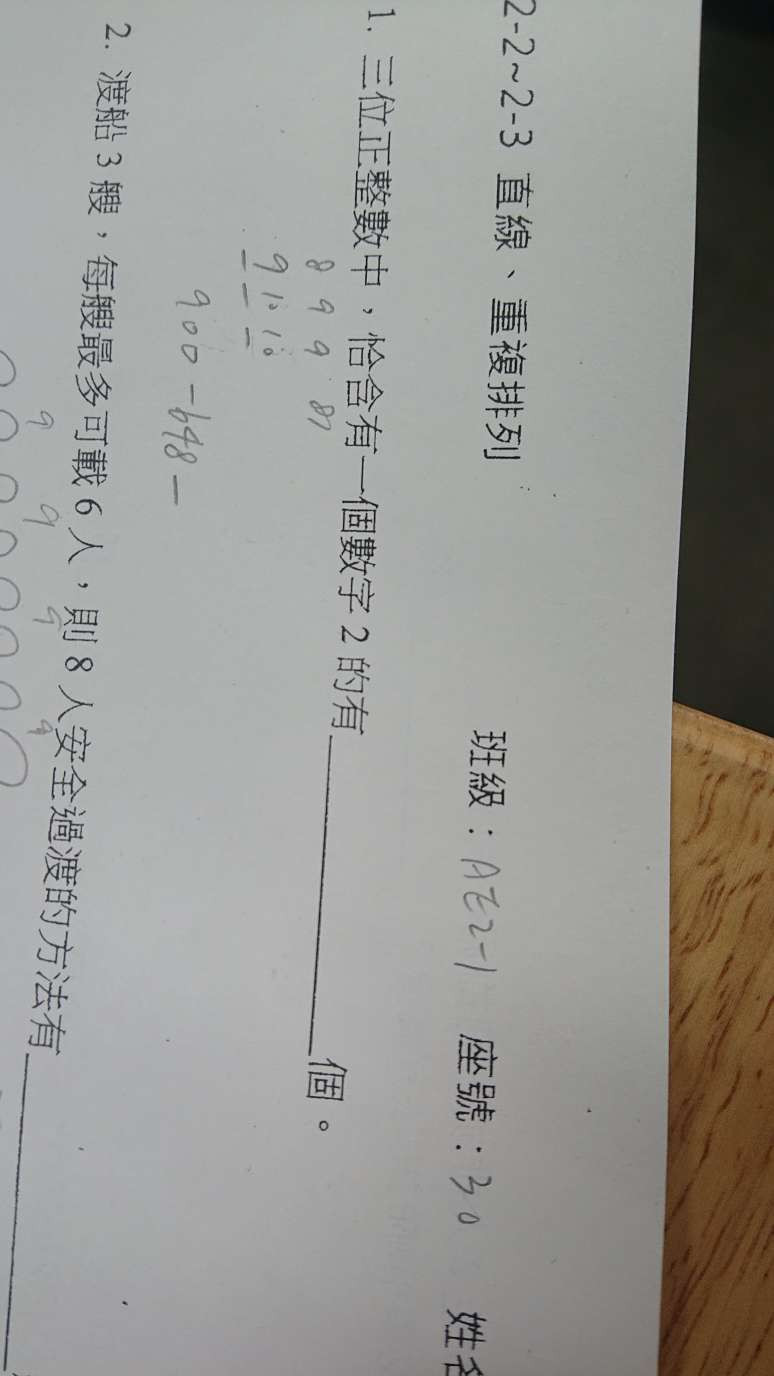 2-2~2-3 直線、重複排列
班級：AE2-1 座號：30 姓名
1. 三位正整數中，恰含有一個數字 2 的有 個。
8 9 9 81
9 10 10
900-648-
2. 渡船 3 艘，每艘最多可載 6 人，則 8 人安全過渡的方法有
9 9 9 9